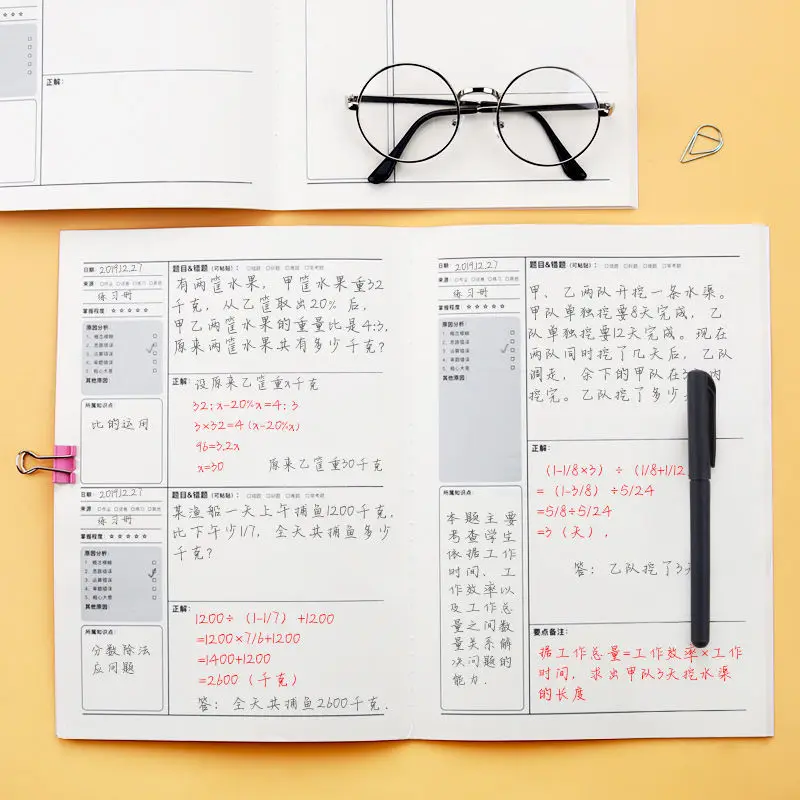 正解:
日期: 2019.12.27
来源: □作业 □试卷 □练习 □其他
练习册
掌握程度: ☆ ☆ ☆ ☆ ☆
原因分析:
1、概念模糊 □
2、思路错误 □
3、运算错误 □
4、审题错误 □
5、粗心大意 □
其他原因:
所属知识点:
比的运用
题目&错题(可粘贴): □错题 □好题 □难题 □常考题
有两筐水果, 甲筐水果重32
千克, 从乙筐取出20% 后,
甲乙两筐水果的重量比是4:3,
原来两筐水果共有多少千克?
正解: 设原来乙筐重x千克
32:x-20%x=4:3
3×32=4(x-20%x)
96=3.2x
x=30 原来乙筐重30千克
日期: 2019.12.27
来源: □作业 □试卷 □练习 □其他
练习册
掌握程度: ☆ ☆ ☆ ☆ ☆
原因分析:
1、概念模糊 □
2、思路错误 □
3、运算错误 □
4、审题错误 □
5、粗心大意 □
其他原因:
所属知识点:
分数除法
应问题
题目&错题(可粘贴): □错题 □好题 □难题 □常考题
某渔船一天上午捕鱼1200千克,
比下午少1/7, 全天共捕鱼多少
千克?
正解:
1200÷ (1-1/7) +1200
=1200×7/6+1200
=1400+1200
=2600(千克)
答: 全天共捕鱼2600千克.
日期: 2019.12.27
来源: □作业 □试卷 □练习 □其他
练习册
掌握程度: ☆ ☆ ☆ ☆ ☆
原因分析:
1、概念模糊 □
2、思路错误 □
3、运算错误 □
4、审题错误 □
5、粗心大意 □
其他原因:
所属知识点:
本题主要
考查学生
依据工作
时间, 工
作效率以
及工作总
量之间数
量关系解
决问题的
能力.
题目&错题(可粘贴): □错题 □好题 □难题 □常考题
甲、乙两队开挖一条水渠。
甲队单独挖要8天完成, 乙
队单独挖要12天完成。现在
两队同时挖了几天后, 乙队
调走, 余下的甲队在3 内
挖完。乙队挖了多少
正解:
(1-1/8×3) ÷ (1/8+1/12
= (1-3/8) ÷5/24
=5/8÷5/24
=3(天),
答: 乙队挖了3天
要点备注:
据工作总量=工作效率×工作
时间, 求出甲队3天挖水渠
的长度